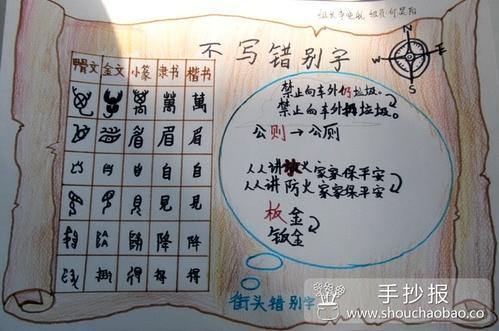 组长 组员
不写错别字
W E
S
甲骨文 金文 小篆 隶书 楷书
萬 萬
眉 眉
自 自
見 見
降 降
得 得
禁止向车外仍垃圾。
禁止向车外扔垃圾。
公则→公厕
人人讲放火家家保平安
人人讲防火家家保平安
板金
钣金
街头错别字
手抄报
www.shouchaobao.co